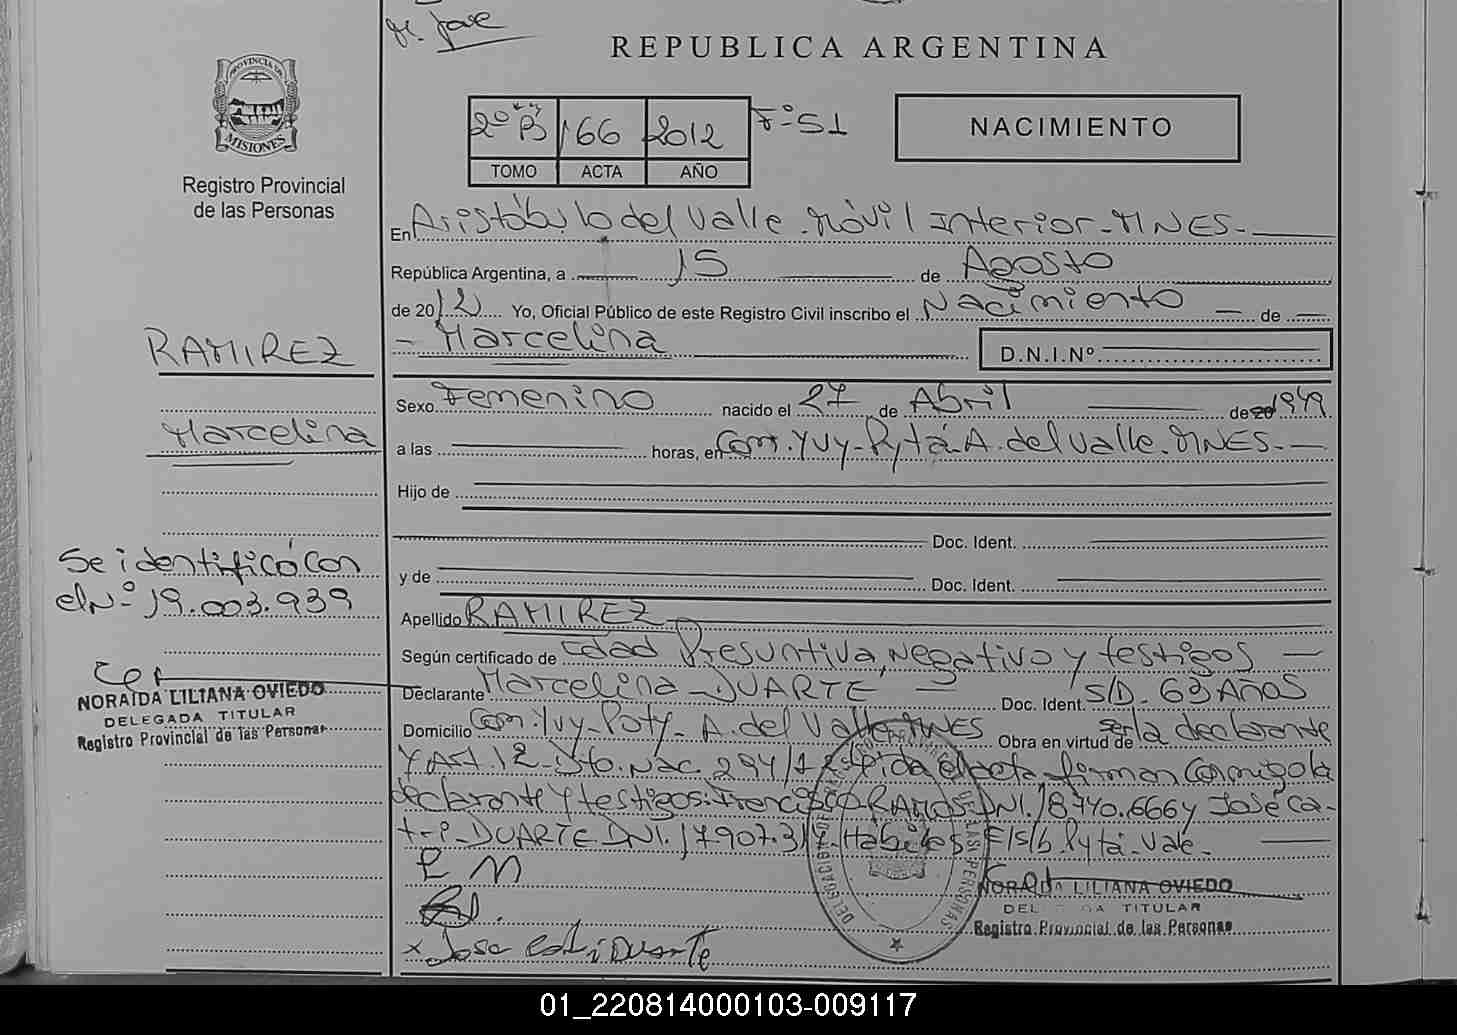 M. Jose
REPUBLICA ARGENTINA
PROVINCIA DE
MISIONES
Registro Provincial
de las Personas
2º "B" 166 2012 Fº 51
TOMO ACTA AÑO
NACIMIENTO
En Aristóbulo del Valle. Móvil Interior - MNES -
República Argentina, a 15 de Agosto
de 2012 Yo, Oficial Público de este Registro Civil inscribo el Nacimiento de
Marcelina D.N.I.Nº
RAMIREZ
Marcelina
Sexo Femenino nacido el 27 de Abril de 20 1949
a las horas, en Com. Yvy-Pytá-A. del Valle. MNES -
Hijo de
Doc. Ident.
y de Doc. Ident.
Se identificó Con
el Nº 19.003.939
Apellido RAMIREZ
Según certificado de Edad Presuntiva, negativo y testigos
Declarante Marcelina DUARTE Doc. Ident. S/D. 63 Años
Domicilio Com. Yvy-Poty - A. del Valle MNES Obra en virtud de ser la declarante
NORAIDA LILIANA OVIEDO
DELEGADA TITULAR
Registro Provincial de las Personas
y Art. 12 - Dto. Nac. 294/1 Leída el acta firman Conmigo la
declarante y testigos: Francisco RAMOS DNI. 18.740.666 y José Ca-
DUARTE DNI. 17.907.314 - Hábiles E/S/b. Pytá. Vale.
R M
x Jose Duarte
NORAIDA LILIANA OVIEDO
DELEGADA TITULAR
Registro Provincial de las Personas
01_220814000103-009117